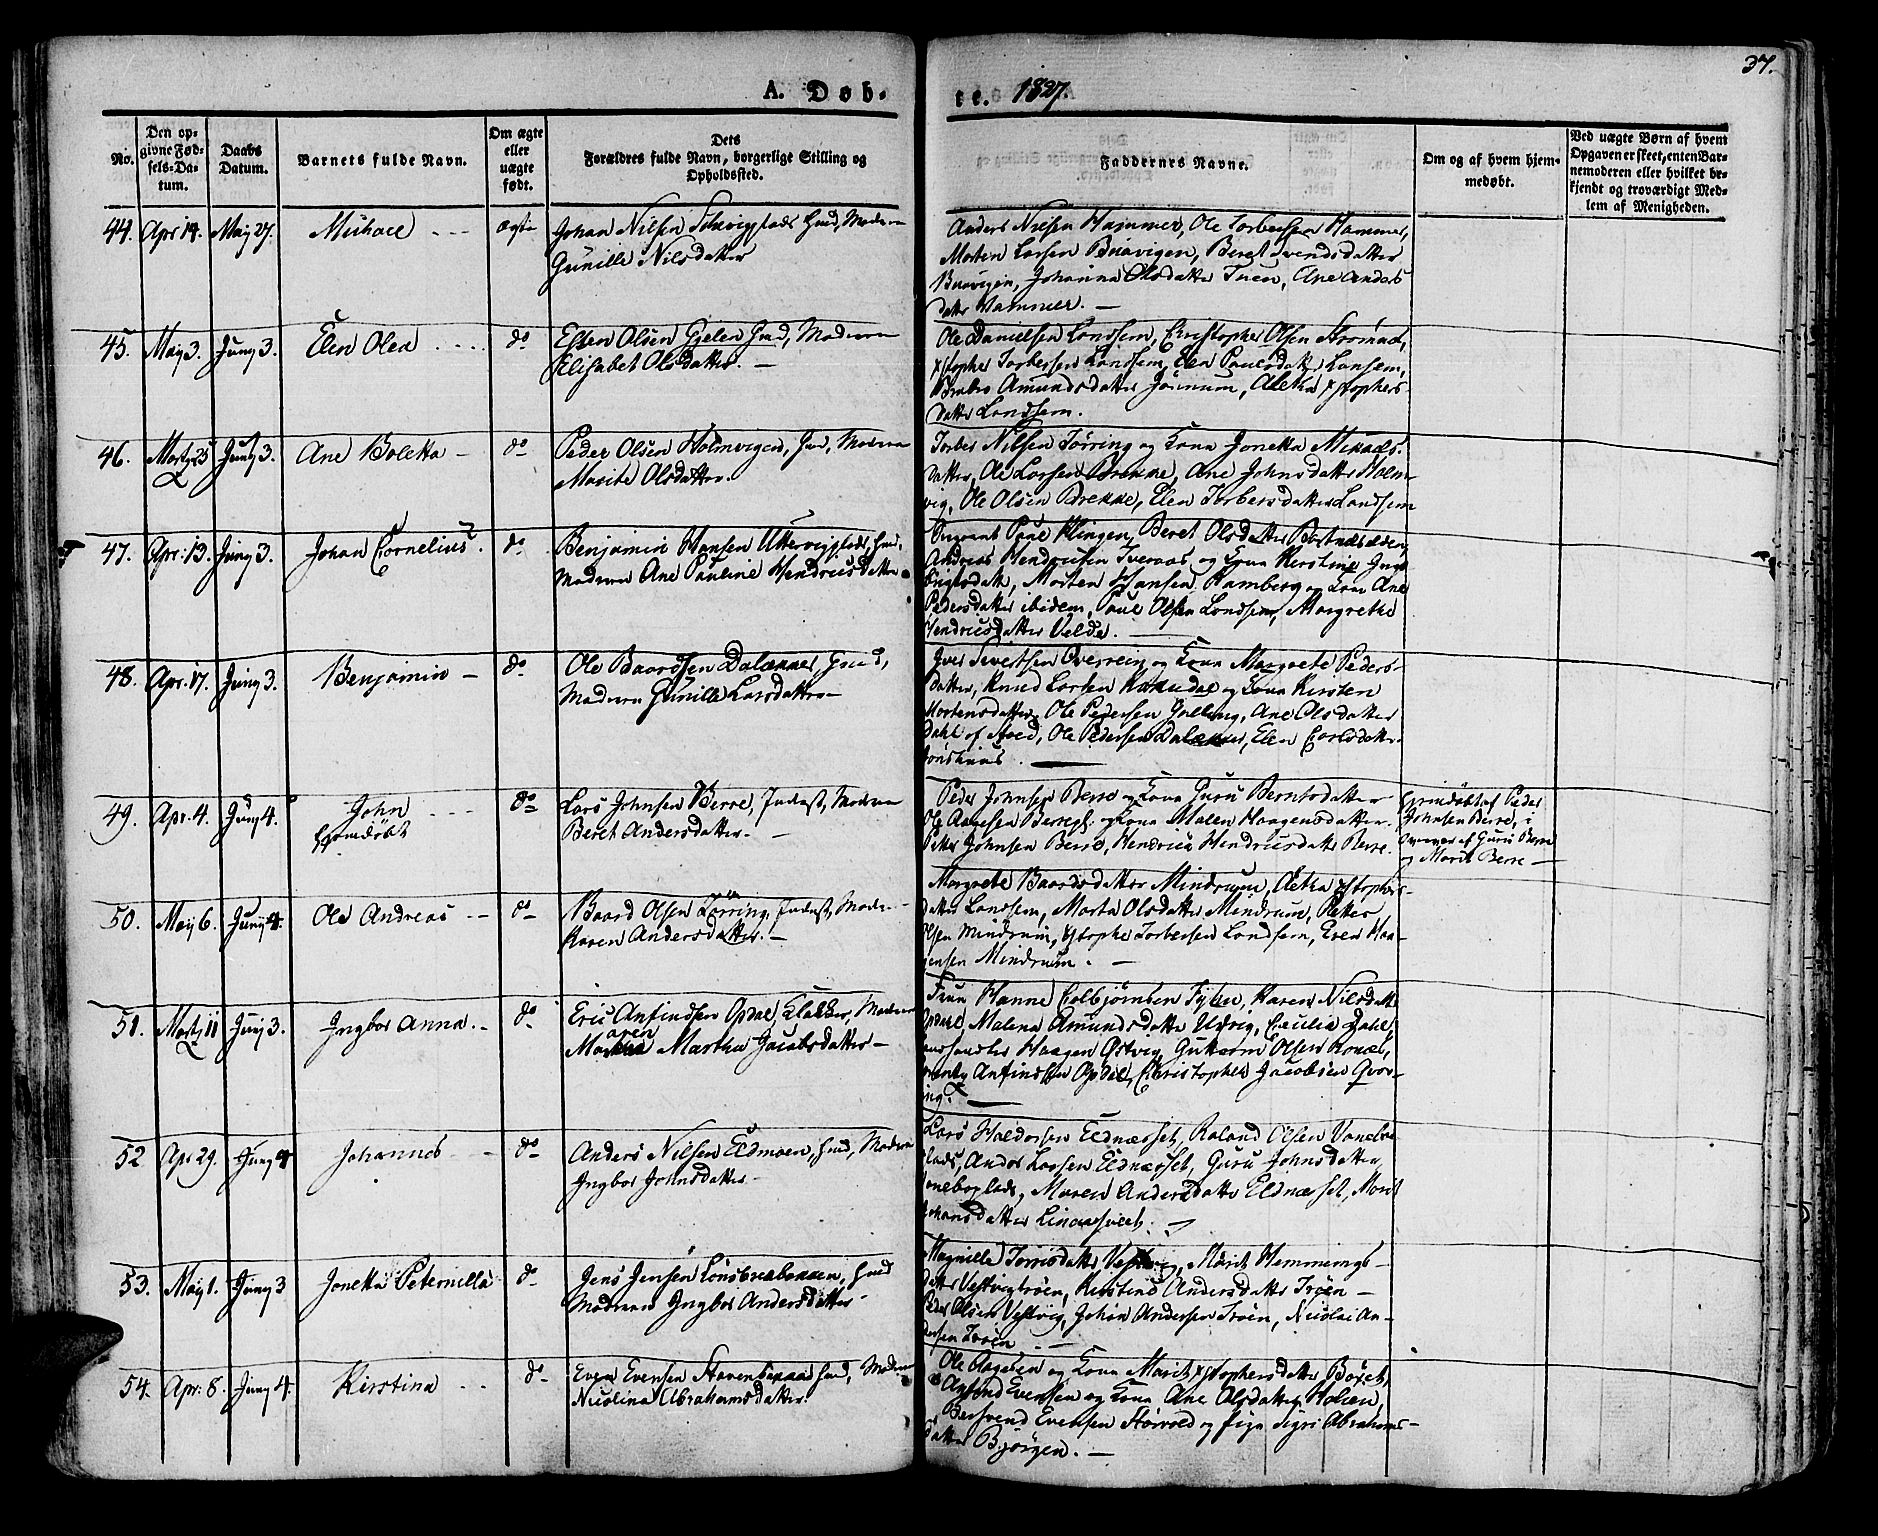 37.
A. Døb-
te. 1827.
No.
Den op-
givne Fød-
sels-Da-
tum.
Daabs
Datum.
Barnets fulde Navn.
Om ægte
eller
uægte
født.
Dets
Forældres fulde Navn, borgerlige Stilling og
Opholdssted.
Faddernes Navne.
Om og af hvem hjem-
medøbt.
Ved uægte Børn af hvem
Opgaven er skeet, enten Bar-
nemoderen eller hvilket be-
kjendt og troværdigt Med-
lem af Menigheden.
44. Apr 14. May 27. Michael ægte Johan Nilsen Gud, Modern
Gunille Nilsdatter
Anders Nilsen Hammer, Ole Torbersen Hammer,
Morten Larsen Buavigen, Beret Svendsdatter
Buavigen, Johanna Olsdatter Tuen, Ane Anders
datter Hammer.
45. May 3. Juny 3. Elen Olea do Esten Olsen Gjelen Gud, Modern
Elisabet Olsdatter.
Ole Danielsen Londsem, Christopher Olsen Strømnæs,
Xstopher Torbersen Londsem, Elen Paulsdatter Lonsem,
Amundsdatter, Aletha Xstophers
datter Londsem.
46. Marty 25 Juny 3. Ane Boletta do Peder Olsen Holmvigen, Gud, Modern
Marite Olsdatter.
Torber Nilsen Tørring og Kona Jonetta Mikaels
datter, Ole Larsen Brekke, Ane Johnsdatter Holm-
vig, Ole Olsen Brekke, Elen Torbersdatter Londsem
47. Apr. 13. Juny 3. Johan Cornelius. do Benjamin Hansen Uttervigplads, Gud,
Modern Ane Pauline Hendricsdatter
Sergeant Paul Klingen, Beret Olsdatter
Andreas Hendricsen Tveraas og Kona Kerstine Inge
brigtsdatt, Morten Hansen Ramberg og Kone Ane
Pedersdatter ibidem, Paul Olsen Londsem, Margrethe
Hendricsdatter Velde.
48. Apr. 17. Juny 3. Benjamin do Ole Baardsen Dalækker, Gud,
Modern Gunille Larsdatter
Iver Sivertsen Overrein og Kona Margrete Peders-
datter, Knud Larsen og Kona Kirsten
Mortensdatter, Ole Pedersen, Ane Olsdatter
Dahl af Stoed, Ole Pedersen Dalækker, Elen Carlsdatter
49. Apr. 4. Juny 4. John
hjemdøbt
do Lars Johnsen Berre, Inderst, Modern
Beret Andersdatter.
Peder Johnsen Berre og Kona Guru Berntsdatter
Ole Aagesen Berrepl. og Kona Malen Haagensdatter.
Petter Johnsen Berre, Hendricsdatter Berre.
hjemdøbt af Peder
Johnsen Berre, i
af Guru Berre
og Marit Berre
50. May 6. Juny 4. Ole Andreas do Baard Olsen Tørring, Inderst, Modern
Karen Andersdatter.
Margrete Baardsdatter Mindrum, Aletha Xstophers-
datter Lonssem, Marta Olsdatter Mindrum, Petter
Olsen Mindrum, Xstopher Torbersen Londsem, Even Haa-
gensen Mindrum.
51. Marty 11 Juny 3. Ingbor Anna. do Eric Anfindsen Opdal Klokker, Modern
Maren Martha Jacobsdatter
Frun Hanne Colbjørnsen, Karen Nilsdatt
Opdal, Malena Amundsdatter Utvig, Cecilia Dahl,
Haagen Østvig, Guttorm Olsen,
Anfindsen Opdal, Christopher Jacobsen Qvar-
ving.
52 Apr 29. Juny 4 Johannes do Anders Nilsen Eldmoen, Gud, Modern
Ingbor Johnsdatter
Lars Haldorsen Eldnæsset, Roland Olsen Vanebo
plads, Anders Larsen Eldnæsset, Guru Johnsdatter
Vaneboplads, Maren Andersdatter Eldnæsset, Marit
Johansdatter.
53. May 1. Juny 3 Jonetta Peternilla do Jens Jensen, Gud
Modern Ingbor Andersdatter
Magnille Torrisdatter Vestvig, Marit Hemmings-
datter Vestvigtrøen, Kirstine Andersdatter Trøen
Peder Olsen Vestvig, Johan Andersen Trøen, Nicolai An-
dersen Trøen
54. Apr. 8. Juny 4. Kirstina do Even Evensen Gud, Modern
Nicolina Abrahamsdatter
Ole Aagesen og Kona Marit Xstophersdatter Bøxet,
Anfind Evensen og Kona Ane Olsdatter Holien,
Bersvend Evensen Størvold og Pige Sigri Abrahams-
datter Bjørgen.